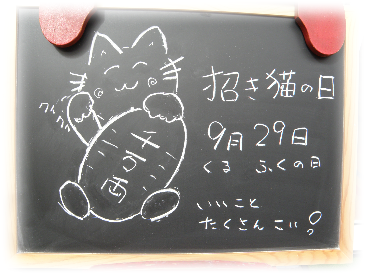 招き猫の日
9月29日
くる ふくの日
いいこと
たくさん こい!
クイクイ
千万両